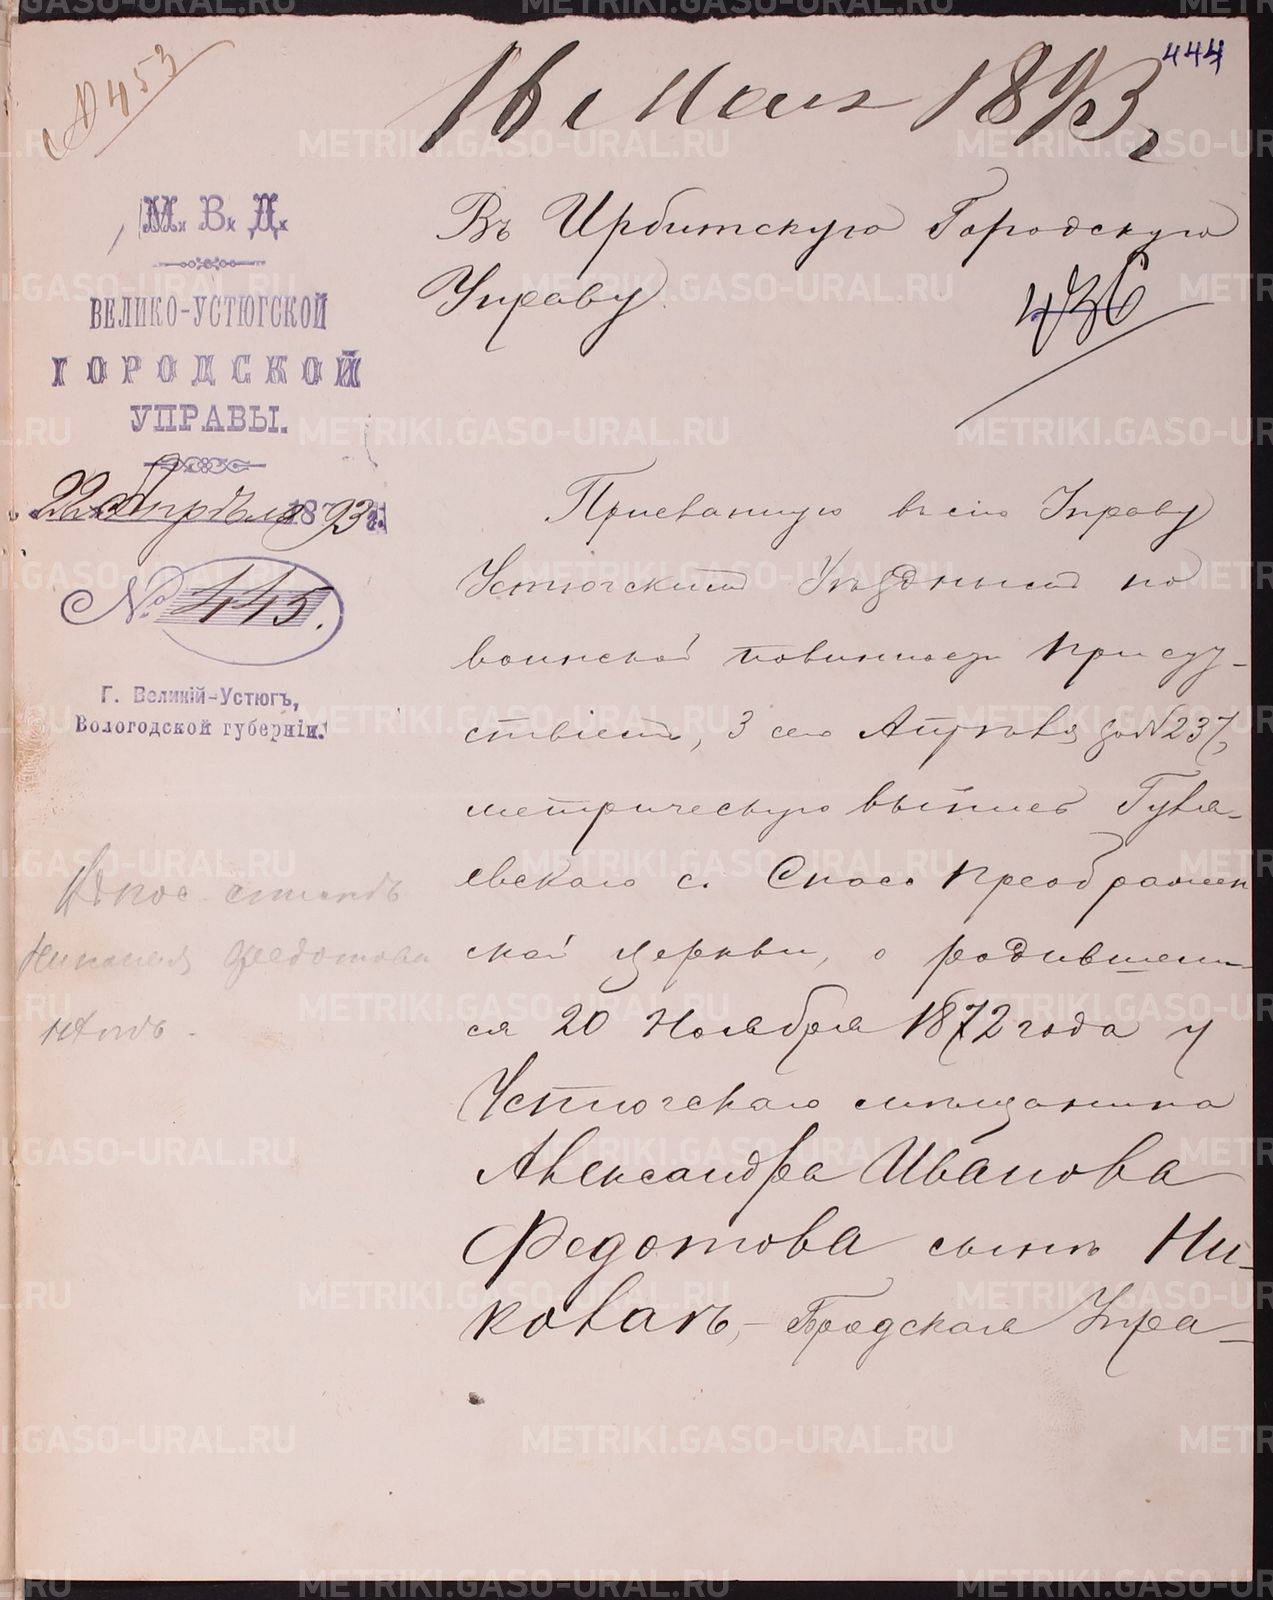 444
№ 453
16 Мая 1893 г.
М. В. Д.
ВЕЛИКО-УСТЮГСКОЙ
ГОРОДСКОЙ
УПРАВЫ.
22 Апрѣля 1893 г.
№ 445.
Г. Великій-Устюгъ,
Вологодской губерніи.
Въ Ирбитскую Городскую
Управу
436
Присланную въ сію Управу
Устюгскимъ Уѣзднымъ по
воинской повинности присут-
ствіемъ, 3 сего Апрѣля за № 237,
метрическую выпись Гуля-
евскаго с. Спасо Преображен
ской церкви, о родившем-
ся 20 Ноября 1872 года у
Устюгскаго мѣщанина
Александра Иванова
Федотова сынѣ Ни-
колаѣ, - Городская Упра-
Николая Федотова
нѣтъ.
METRIKI.GASO-URAL.RU